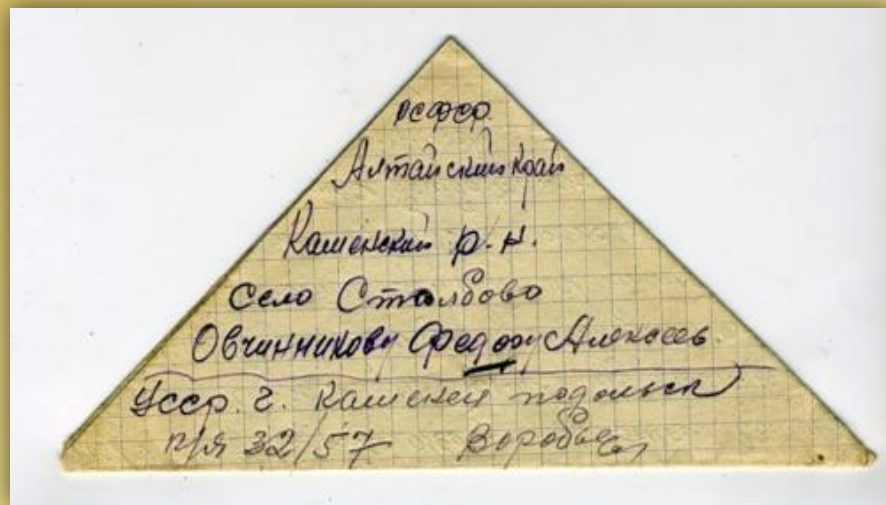 РСФСР.
Алтайский край
Каменский р.н.
село Столбово
Овчинникову Федору Алексеев.
УССР. г. Каменец подольск
п/я 32/57 Воробьев